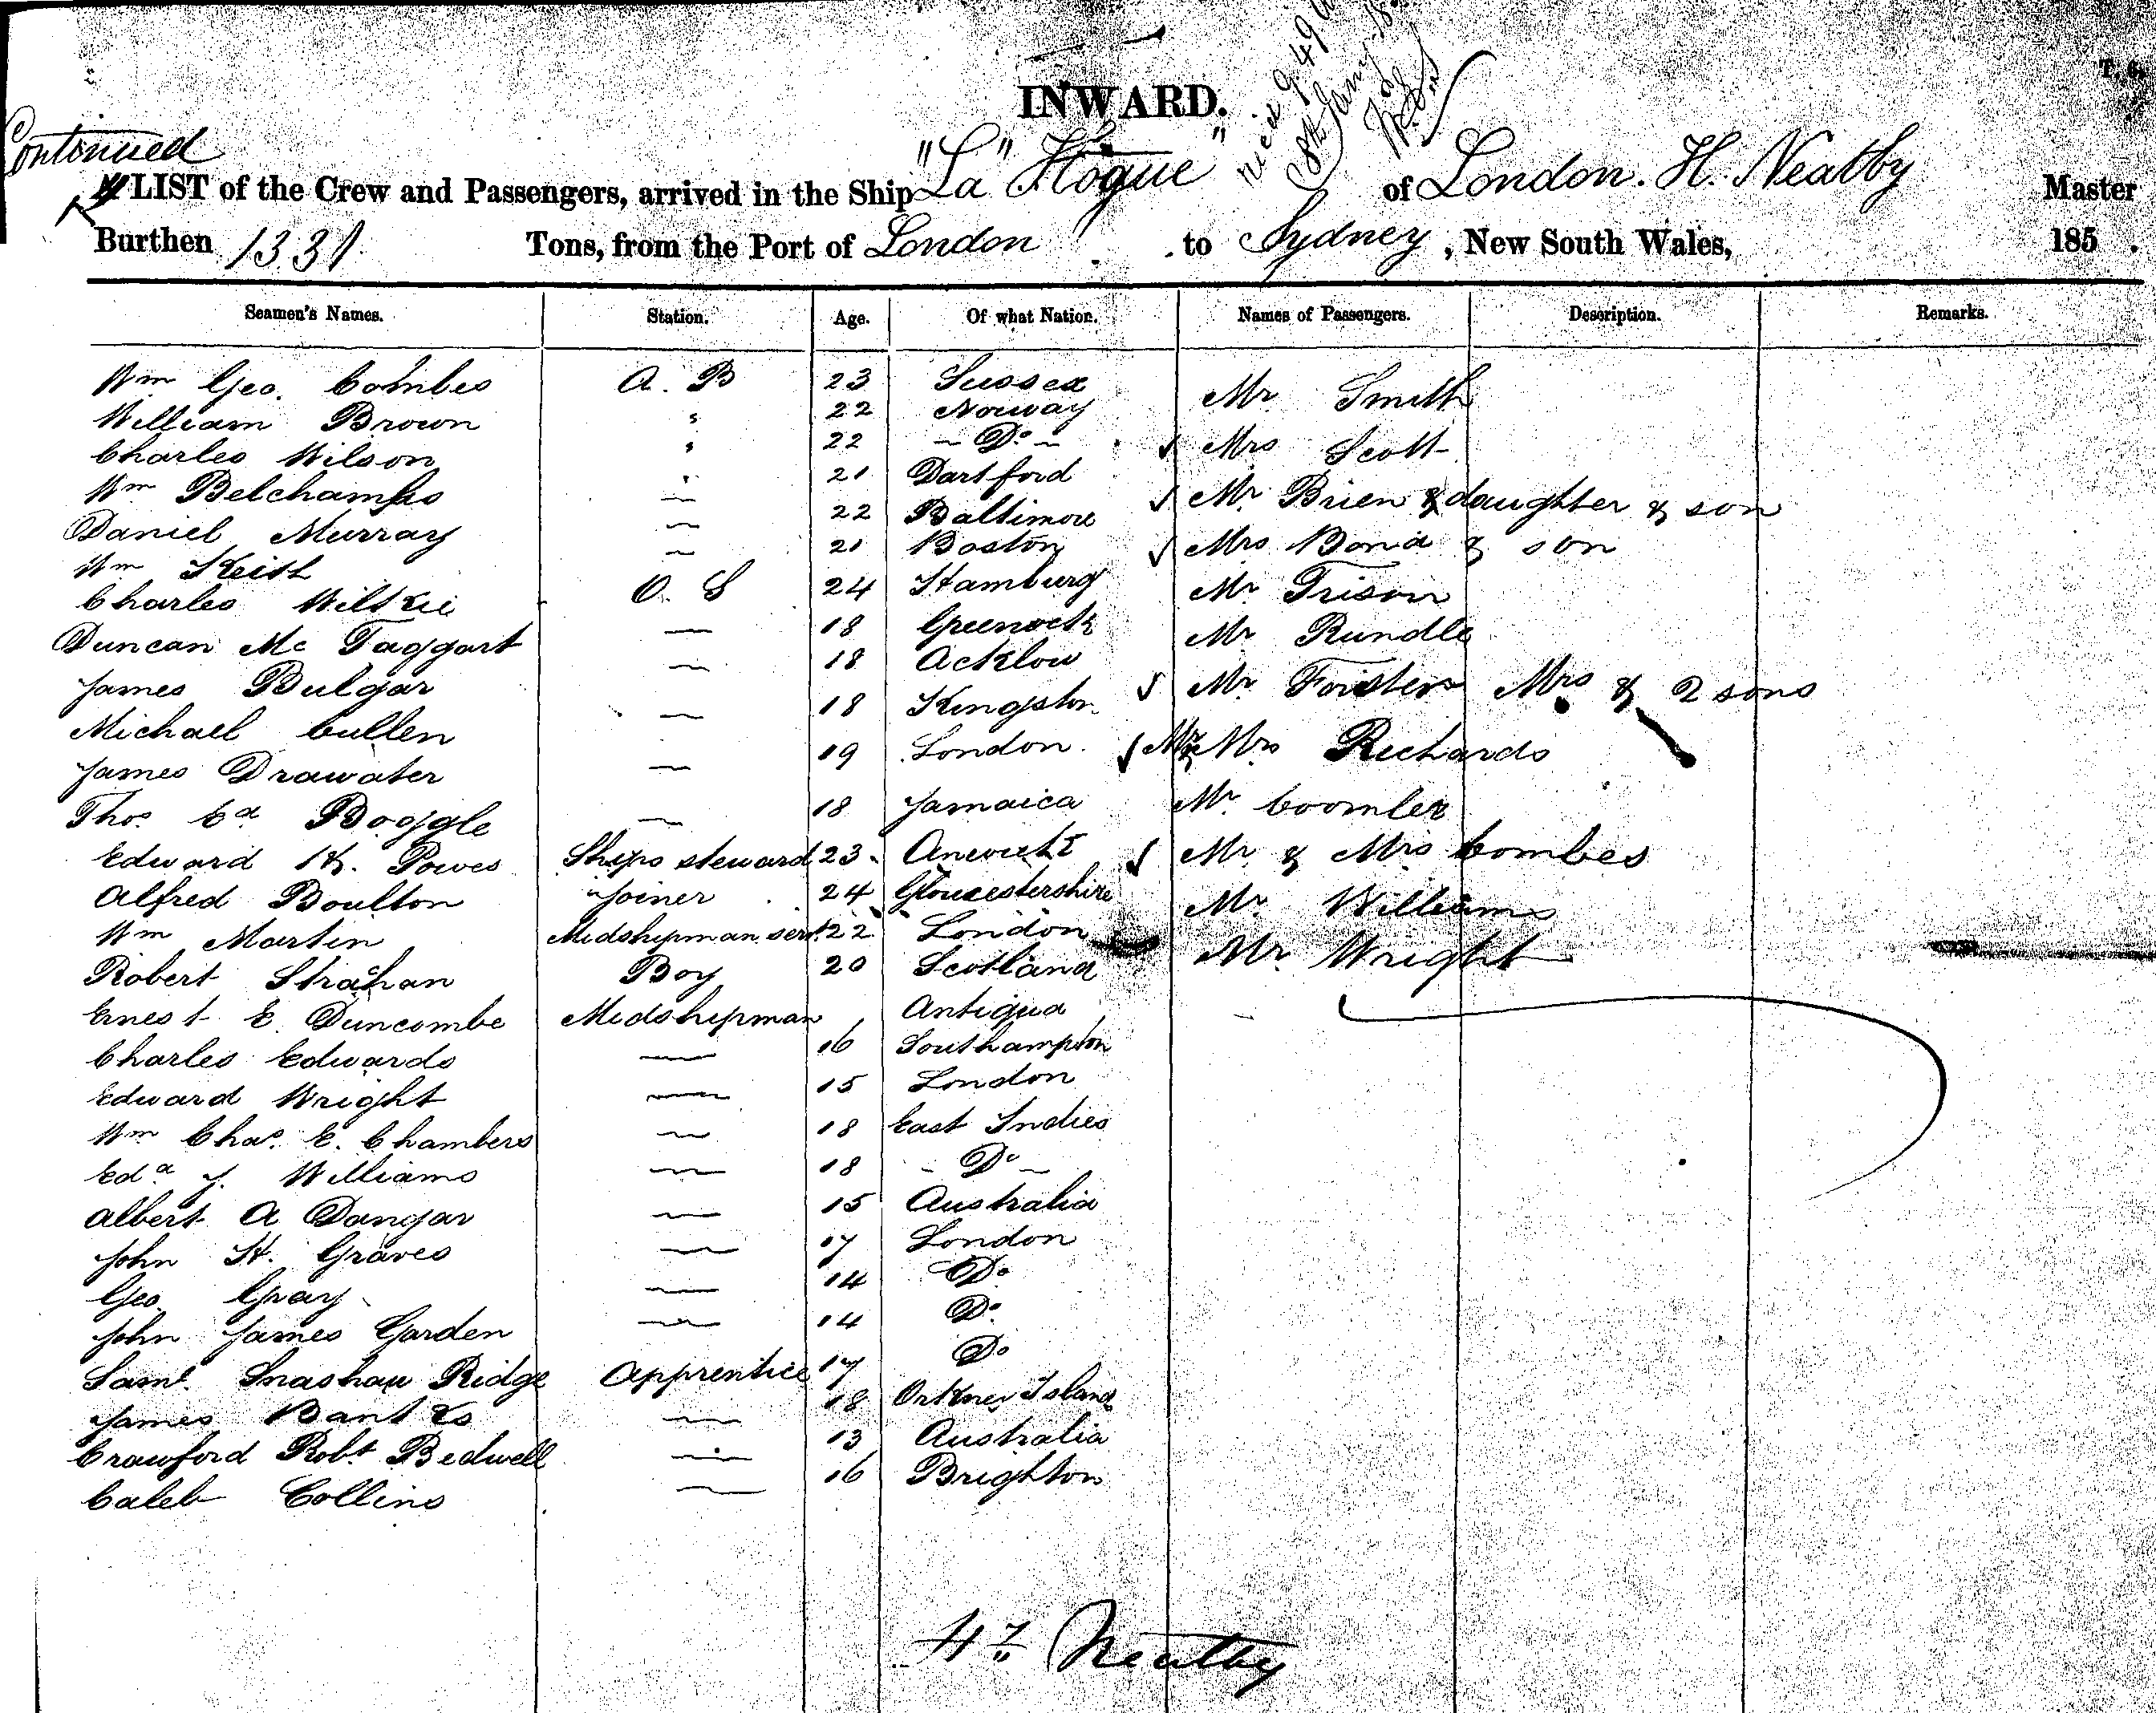 T. 6.
INWARD.
Continued
LIST of the Crew and Passengers, arrived in the Ship "La" Hogue" of London. H. Neatby Master
Burthen 1331 Tons, from the Port of London to Sydney, New South Wales, 185 .
Seamen's Names. Station. Age. Of what Nation. Names of Passengers. Description. Remarks.
Wm Geo. Combes A. B 23 Sussex Mr Smith
William Brown " 22 Norway
Charles Wilson " 22 - Do - Mrs Scott
Wm Belchamps " 21 Dartford Mr Brien & daughter & son
Daniel Murray — 22 Baltimore
Wm Keith — 21 Boston Mrs Bond & son
Charles Wilkie O. S 24 Hamburg Mr Trison
Duncan Mc Taggart — 18 Greenock Mr Rundle
James Bulgar — 18 Acklow Mr Forster Mrs & 2 sons
Michael Cullen — 18 Kingston
James Drawater — 19 London. Mr & Mrs Richards
Thos Ed Boggle — 18 Jamaica Mr Coomber
Edward Powes Ships steward 23 Mr & Mrs Combes
Alfred Boulton Joiner 24 Gloucestershire Mr Williams
Wm Martin Midshipman sert. 22 London Mr. Wright
Robert Strahan Boy 20 Scotland
Ernest E. Duncombe Midshipman Antigua
Charles Edwards — 16 Southampton
Edward Wright — 15 London
Wm Chas. E. Chambers — 18 East Indies
Edd J. Williams — 18 - Do -
Albert A Dangar — 15 Australia
John H. Graves — 17 London
Geo. Gray — 14 Do
John James Garden — 14 Do
Saml. Snashau Ridge Apprentice 17 Do
James Banks — 18 Orkney Island
Crawford Robt Bedwell — 13 Australia
Caleb Collins — 16 Brighton
Hy Neatby